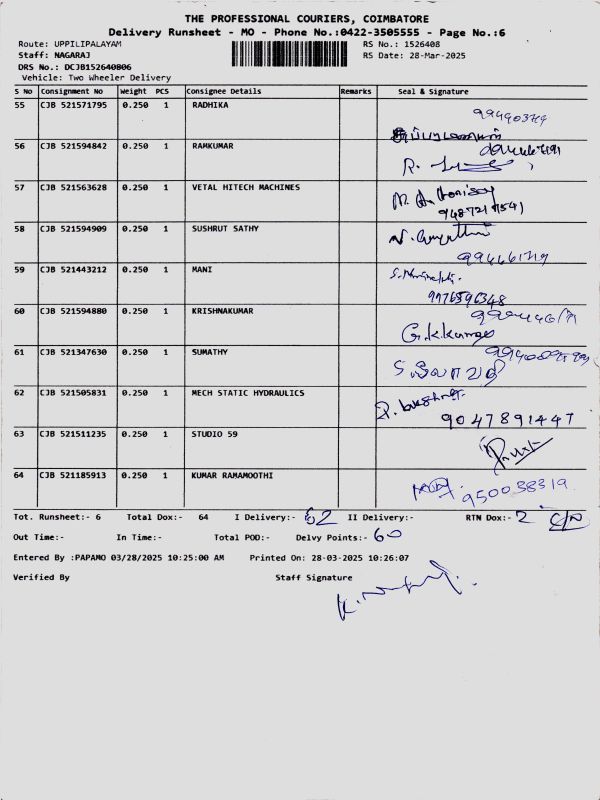 THE PROFESSIONAL COURIERS, COIMBATORE
Delivery Runsheet - MO - Phone No.:0422-3505555 - Page No.:6
Route: UPPILIPALAYAM RS No.: 1526408
Staff: NAGARAJ RS Date: 28-Mar-2025
DRS No.: DCJB152640806
Vehicle: Two Wheeler Delivery
S No Consignment No Weight PCS Consignee Details Remarks Seal & Signature
55 CJB 521571795 0.250 1 RADHIKA
56 CJB 521594842 0.250 1 RAMKUMAR
57 CJB 521563628 0.250 1 VETAL HITECH MACHINES
58 CJB 521594909 0.250 1 SUSHRUT SATHY
59 CJB 521443212 0.250 1 MANI
60 CJB 521594880 0.250 1 KRISHNAKUMAR
G.K.Kumar
61 CJB 521347630 0.250 1 SUMATHY
62 CJB 521505831 0.250 1 MECH STATIC HYDRAULICS
9047891447
63 CJB 521511235 0.250 1 STUDIO 59
64 CJB 521185913 0.250 1 KUMAR RAMAMOOTHI
950038319
Tot. Runsheet:- 6 Total Dox:- 64 I Delivery:- 62 II Delivery:- RTN Dox:- 2
Out Time:- In Time:- Total POD:- Delvy Points:- 60
Entered By :PAPAMO 03/28/2025 10:25:00 AM Printed On: 28-03-2025 10:26:07
Verified By Staff Signature